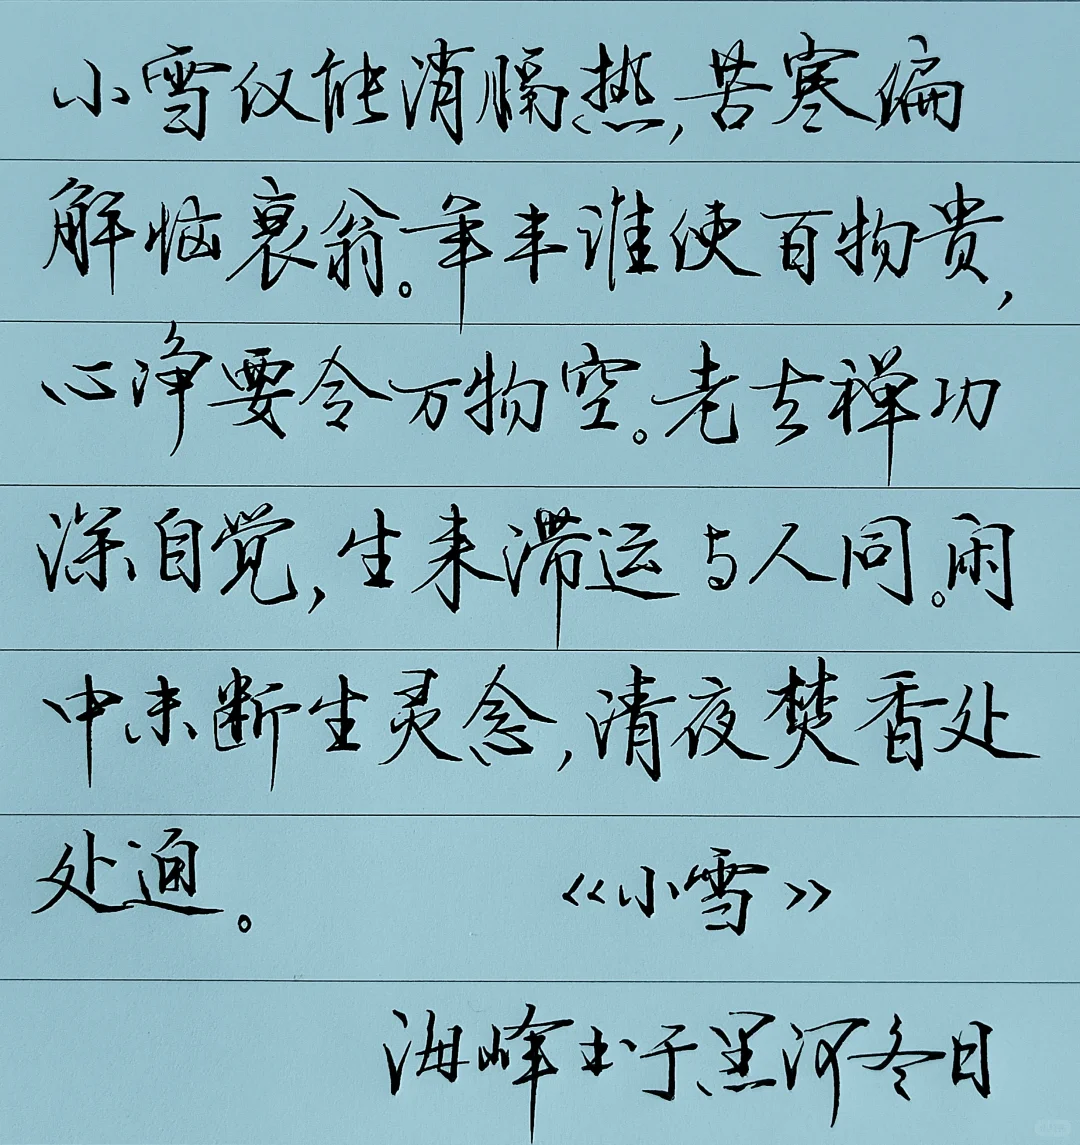 小雪仅能消膈热,苦寒偏
解恼衰翁。年丰谁使百物贵,
心净要令万物空。老去禅功
深自觉,生来滞运与人同。闲
中未断生灵念,清夜焚香处
处通。 《小雪》
海峰书于黑河冬日